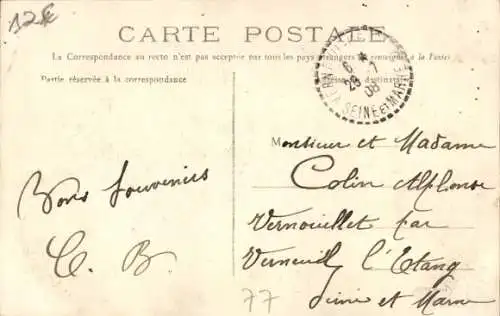 12 k
CARTE POSTALE
La Correspondance au recto n'est pas acceptée par tous les pays étrangers (se renseigner à la Poste)
Partie réservée à la correspondance
6 *
28 - 7
08
SEINE ET MARNE
Monsieur et Madame
Colin Alphonse
Vernouillet par
Verneuil l'Etang
Seine et Marne
Bons Souvenirs
C. B.
77